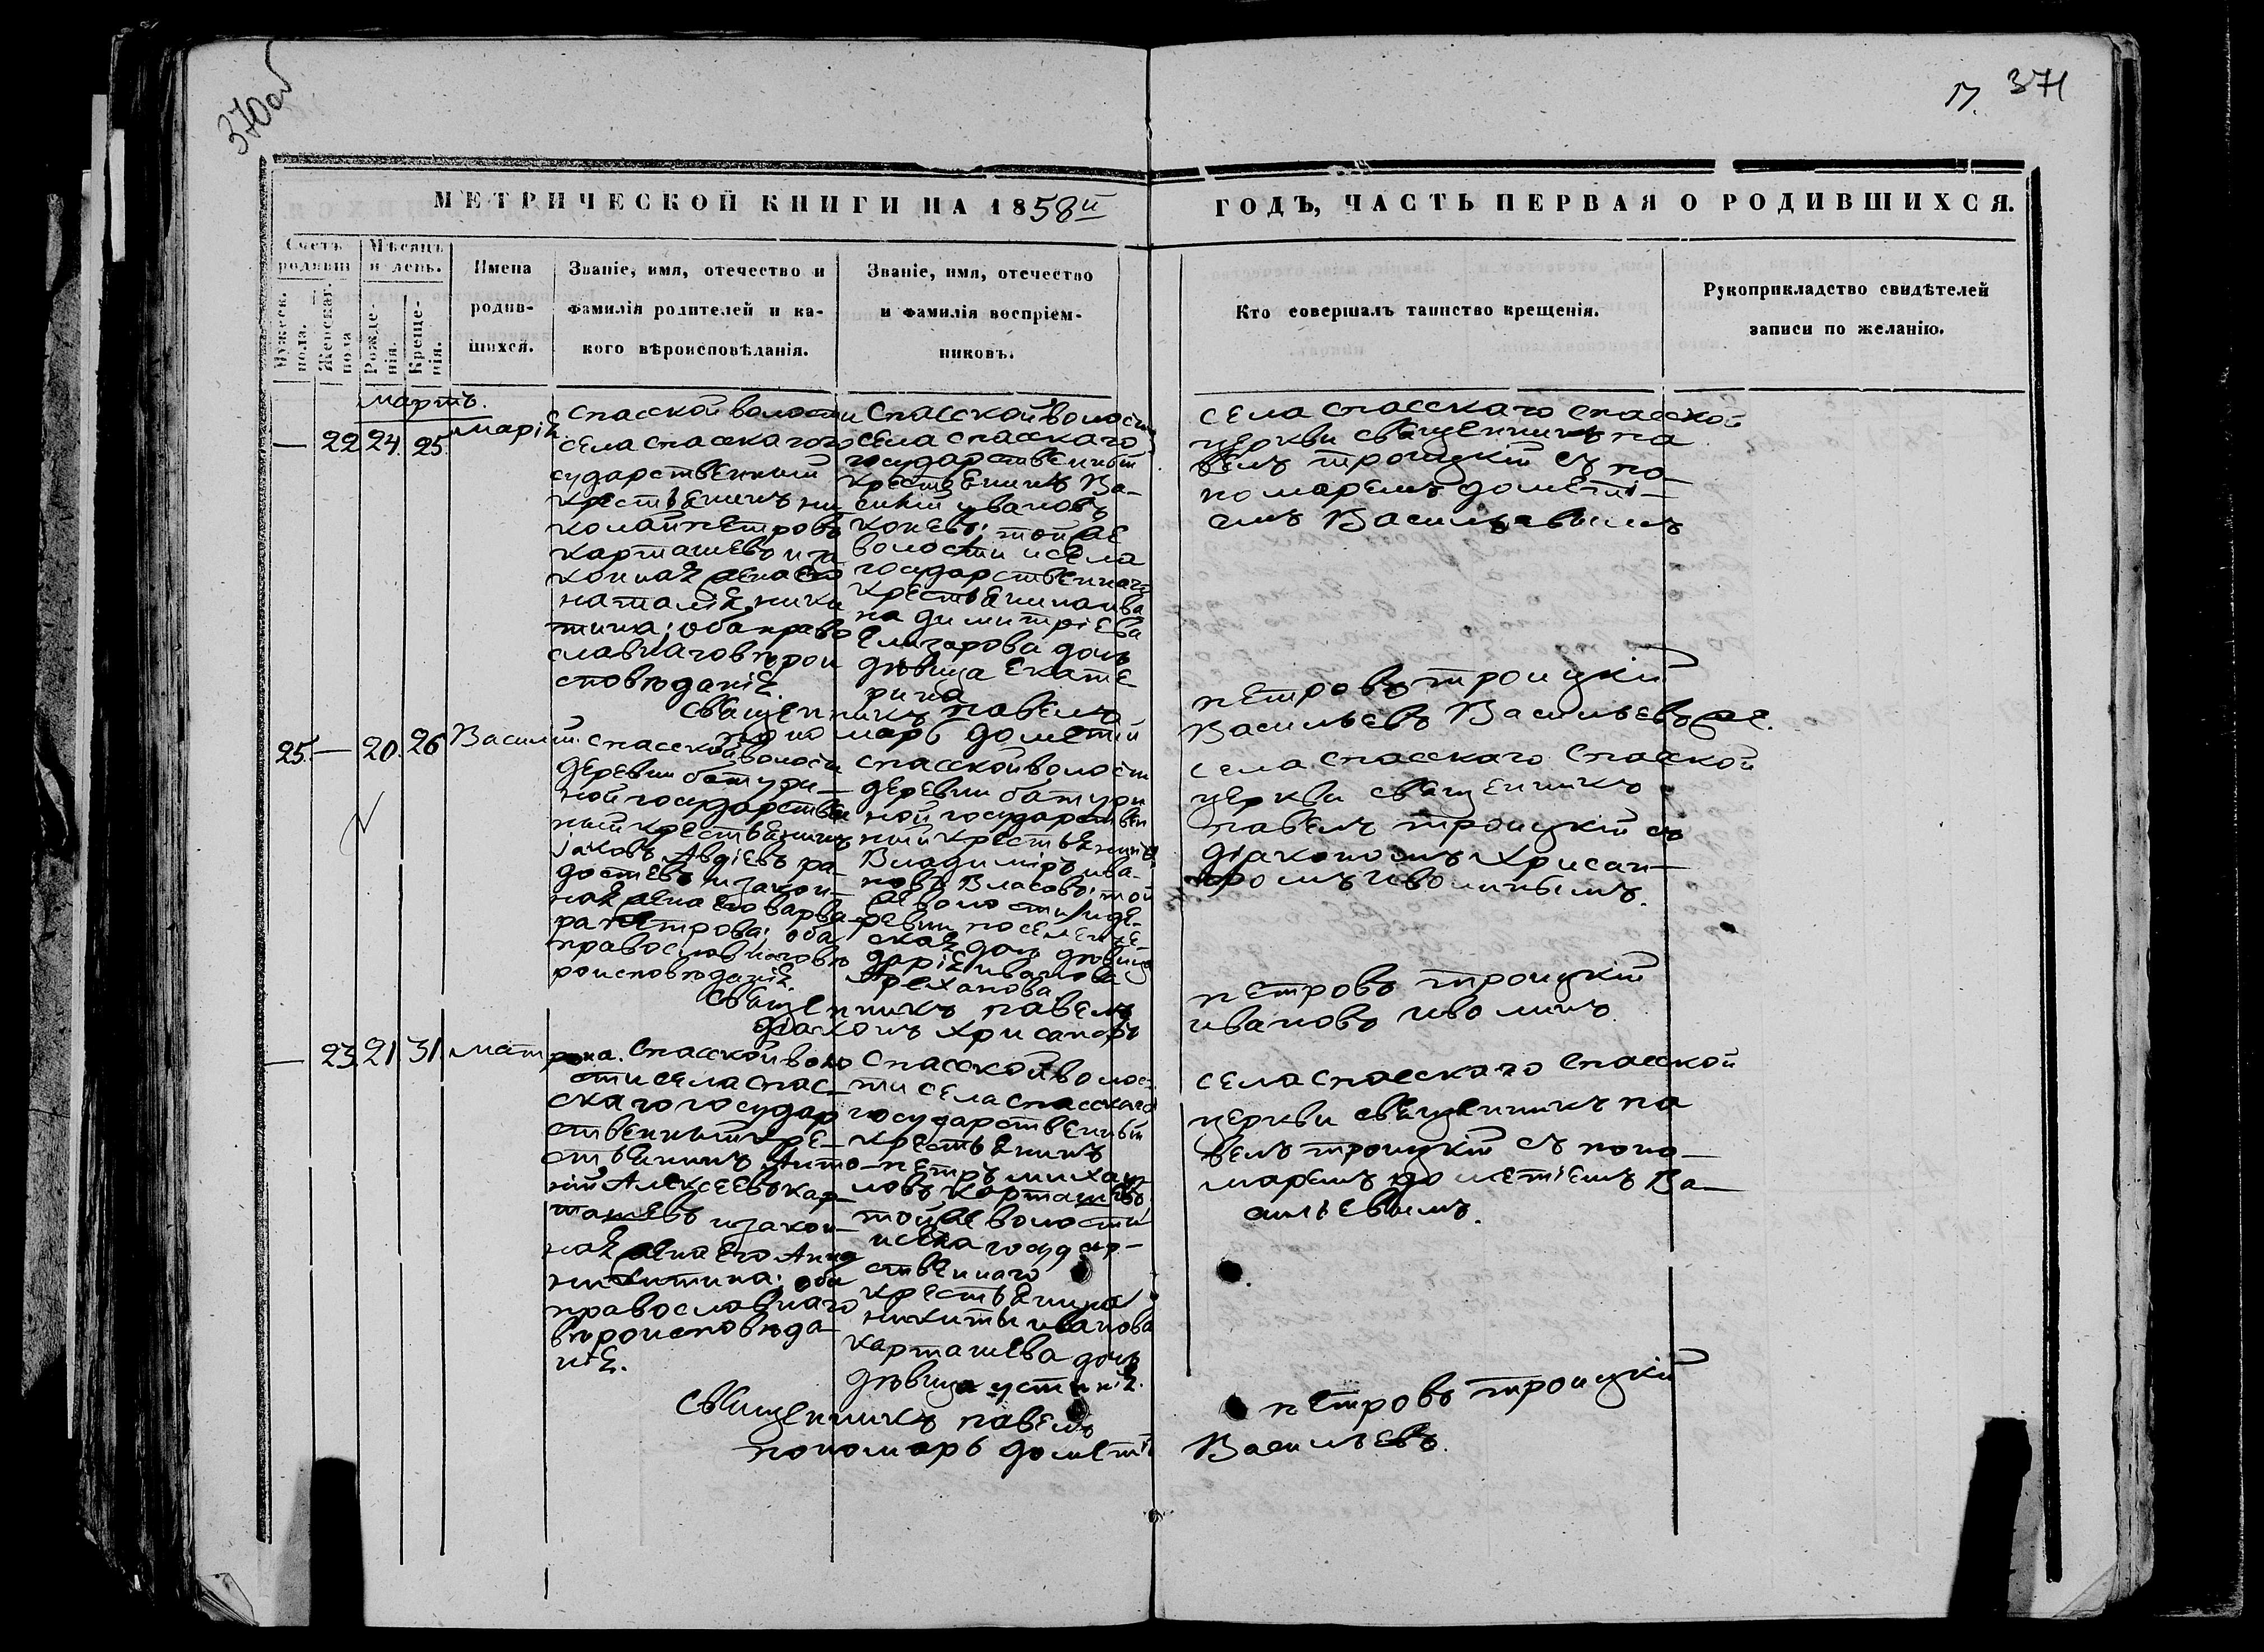 370 об
17. 371
МЕТРИЧЕСКОЙ КНИГИ НА 1858й
ГОДЪ, ЧАСТЬ ПЕРВАЯ О РОДИВШИХСЯ.
Счетъ родивш
Мѣсяцъ и день.
Мужеск. пола.
Женскаг. пола
Рожде-нія.
Креще-нія.
Имена
родив-
шихся.
Званіе, имя, отечество и
фамилія родителей и ка-
кого вѣроисповѣданія.
Званіе, имя, отечество
и фамилія воспріем-
никовъ.
Кто совершалъ таинство крещенія.
Рукоприкладство свидѣтелей
записи по желанію.
мартъ.
— 22 24. 25. марія
спасской волости
села спасскаго го
сударственный
крестьянинъ ни
колай петровъ
карташевъ и за
конная жена его
наталія ники
тина; оба право
славнаго вѣрои
сповѣданія.
Спасской волости
села спасскаго
государственный
крестьянинъ Ва-
силій ивановъ
коневъ; той же
волости и села
государственнаго
крестьянина ива
на димитріева
Елизарова дочь
дѣвица Екате
рина
села спасскаго спасской
церкви священникъ па
велъ троицкій съ по-
номаремъ дометі-
емъ Васильевымъ
священникъ павелъ
петровъ троицкій
пономарь дометій
Васильевъ Васильевъ же.
25. — 20. 26 Василій.
спасской волости
деревни батури-
ной государствен
ный крестьянинъ
іаковъ Авдіевъ ра-
достевъ и закон-
ная жена его варва-
ра петрова; оба
православнаго вѣ
роисповѣданія.
спасской волости
деревни батури
ной государствен
ный крестьянинъ
Владиміръ ива-
новъ Власовъ; той
же волости и де-
ревни поселенче-
ская дочь дѣвица
дарія иванова
села спасскаго спасской
церкви священникъ
павелъ троицкій съ
діакономъ хрисан-
фомъ иволинымъ.
священникъ павелъ
петровъ троицкій
діаконъ хрисанфъ
ивановъ иволинъ.
— 23. 21. 31. матрона.
спасской воло
сти села спас-
скаго государ
ственный кре-
стьянинъ Анто-
ній Алексеевъ кар
ташевъ и закон-
ная жена его Анна
никитина; оба
православнаго
вѣроисповѣда-
нія.
Спасской волос
ти села спасскаго
государственный
крестьянинъ
петръ михаи
ловъ карташевъ;
той же волости
и села государ-
ственнаго
крестьянина
никиты иванова
карташева дочь
дѣвица устинія.
села спасскаго спасской
церкви священникъ па
велъ троицкій съ поно-
маремъ дометіемъ Ва-
сильевымъ.
священникъ павелъ
петровъ троицкій
пономарь дометій
Васильевъ.